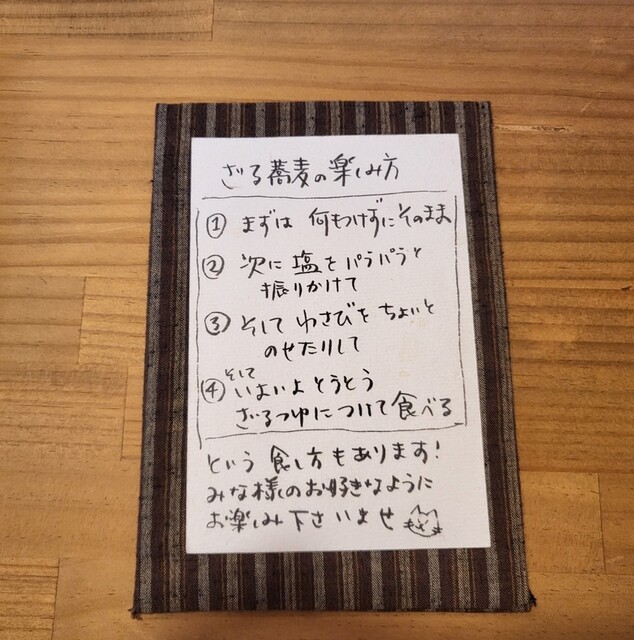 ざる蕎麦の楽しみ方
① まずは 何もつけずにそのまま
② 次に 塩をパラパラと
振りかけて
③ そして わさびをちょいと
のせたりして
そして
④ いよいよ とうとう
ざるつゆにつけて食べる
という 食し方もあります!
みな様のお好きなように
お楽しみ下さいませ